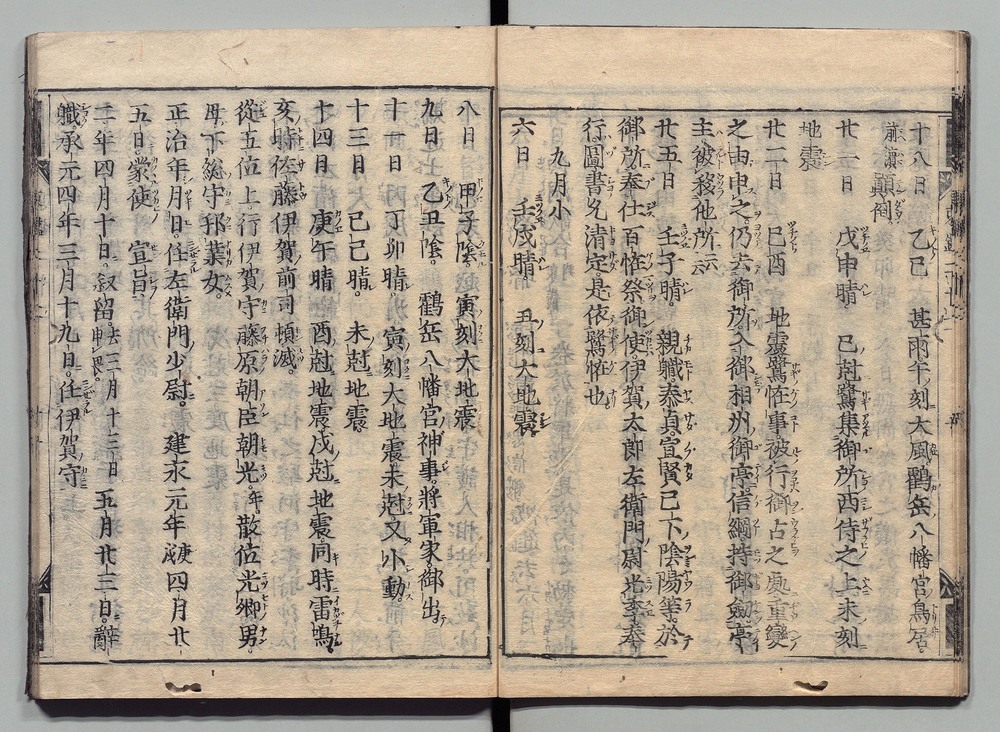 十八日 乙巳 甚雨午刻大風鶴岳八幡宮鳥居
顛倒
廿一日 戊申晴 巳尅鷺集御所西侍之上未刻
地震
廿二日 己酉 地震驚恠事被行御占之處重變
之由申之仍去御所入御相州御亭信綱持御劔亭
主被移他所云云
廿五日 壬子晴 親職泰貞宣賢已下陰陽等於
御所奉仕百恠祭御使伊賀太郎左衛門尉光季奉
行圖書允清定是依鷺恠也
九月小
六日 壬戌晴 丑刻大地震
八日 甲子陰寅刻大地震
九日 乙丑陰 鶴岳八幡宮神事將軍家御出
十一日 丁卯晴 寅刻大地震未尅又小動
十三日 己巳晴 未尅地震
十四日 庚午晴 酉尅地震戌尅地震同時雷鳴
亥時佐藤伊賀前司頓滅
從五位上行伊賀守藤原朝臣朝光年 散位光郷男
母下総守邦業女
正治年月日任左衛門少尉 建永元年庚戌四月廿
五日蒙使 宣旨
二年四月十日叙留去三月十三日申畏 五月廿三日辭
職承元四年三月十九日任伊賀守